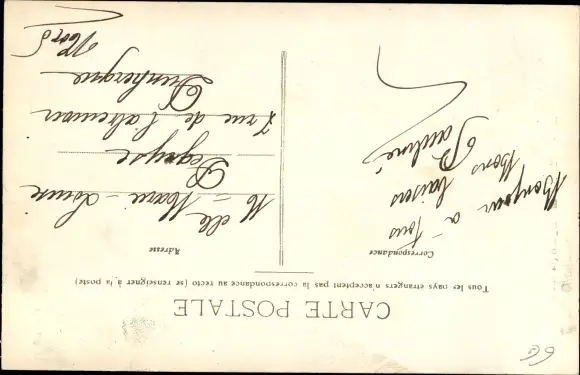 CARTE POSTALE
Tous les pays étrangers n'acceptent pas la correspondance au recto (se renseigner à la poste)
Correspondance
Bonjour a Tous
Bons baisers
Pauline
Adresse
Melle Marie-Louise
7 rue de
Dunkerque
Nord